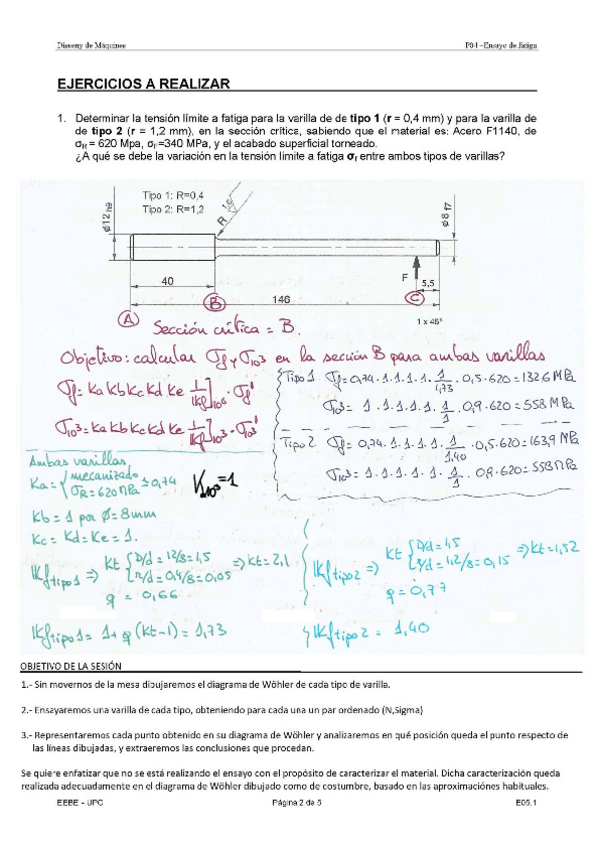 Disseny de Màquines P04 –Ensayo de fatiga
EJERCICIOS A REALIZAR
1. Determinar la tensión límite a fatiga para la varilla de de tipo 1 (r = 0,4 mm) y para la varilla de
de tipo 2 (r = 1,2 mm), en la sección crítica, sabiendo que el material es: Acero F1140, de
σR = 620 Mpa, σF=340 MPa, y el acabado superficial torneado.
¿A qué se debe la variación en la tensión límite a fatiga σf entre ambos tipos de varillas?
Tipo 1: R=0,4
Tipo 2: R=1,2
R
1,6
ϕ12 h9
ϕ8 f7
40
146
F
5,5
1 x 45°
A
B
C
Sección crítica = B.
Objetivo: calcular σf y σ10³ en la sección B para ambas varillas
σf = ka kb kc kd ke 1/Kf]10⁶ · σf'
σ10³ = ka kb kc kd ke 1/Kf]10³ · σ10³'
Tipo 1 σf = 0,74 · 1 · 1 · 1 · 1 · 1/1,73 · 0,5 · 620 = 132,6 MPa
σ10³ = 1 · 1 · 1 · 1 · 1 · 1/1 · 0,9 · 620 = 558 MPa
Tipo 2 σf = 0,74 · 1 · 1 · 1 · 1 · 1/1,40 · 0,5 · 620 = 163,9 MPa
σ10³ = 1 · 1 · 1 · 1 · 1 · 1/1 · 0,9 · 620 = 558 MPa
Ambas varillas
ka = { mecanizado σR = 620 MPa = 0,74
K10³ = 1
kb = 1 por ϕ = 8mm
kc = kd = ke = 1.
Kf tipo 1 => kt { D/d = 12/8 = 1,5 r/d = 0,4/8 = 0,05 => kt = 2,1
q = 0,66
Kf tipo 1 = 1 + q (kt - 1) = 1,73
Kf tipo 2 => kt { D/d = 1,5 r/d = 1,2/8 = 0,15 => kt = 1,52
q = 0,77
Kf tipo 2 = 1,40
OBJETIVO DE LA SESIÓN
1.- Sin movernos de la mesa dibujaremos el diagrama de Wöhler de cada tipo de varilla.
2.- Ensayaremos una varilla de cada tipo, obteniendo para cada una un par ordenado (N,Sigma)
3.- Representaremos cada punto obtenido en su diagrama de Wöhler y analizaremos en qué posición queda el punto respecto de
las líneas dibujadas, y extraeremos las conclusiones que procedan.
Se quiere enfatizar que no se está realizando el ensayo con el propósito de caracterizar el material. Dicha caracterización queda
realizada adecuadamente en el diagrama de Wöhler dibujado como de costumbre, basado en las aproximaciónes habituales.
EEBE - UPC Página 2 de 5 E05.1